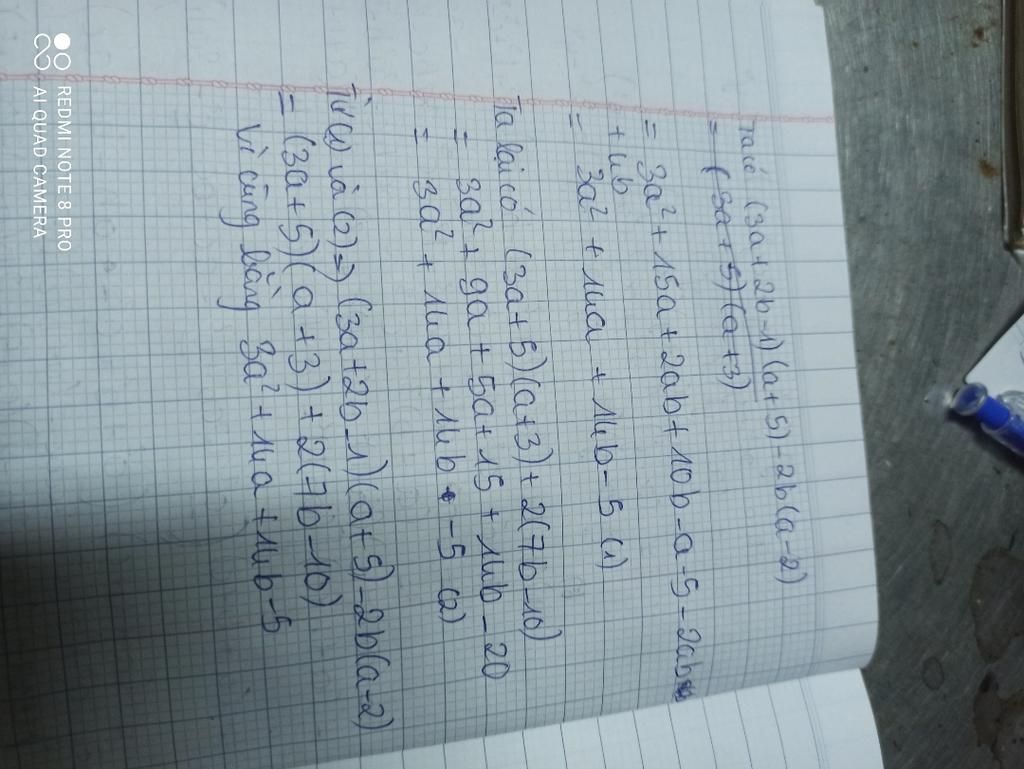 Ta có (3a+2b-1)(a+5)-2b(a-2)
= (3a+5)(a+3)
= 3a²+15a+2ab+10b-a-5-2ab
+4b
= 3a²+14a+14b-5 (1)
Ta lại có (3a+5)(a+3)+2(7b-10)
= 3a²+9a+5a+15+14b-20
= 3a²+14a+14b-5 (2)
Từ (1) và (2)=> (3a+2b-1)(a+5)-2b(a-2)
= (3a+5)(a+3)+2(7b-10)
Vì cùng bằng 3a²+14a+14b-5
REDMI NOTE 8 PRO
AI QUAD CAMERA